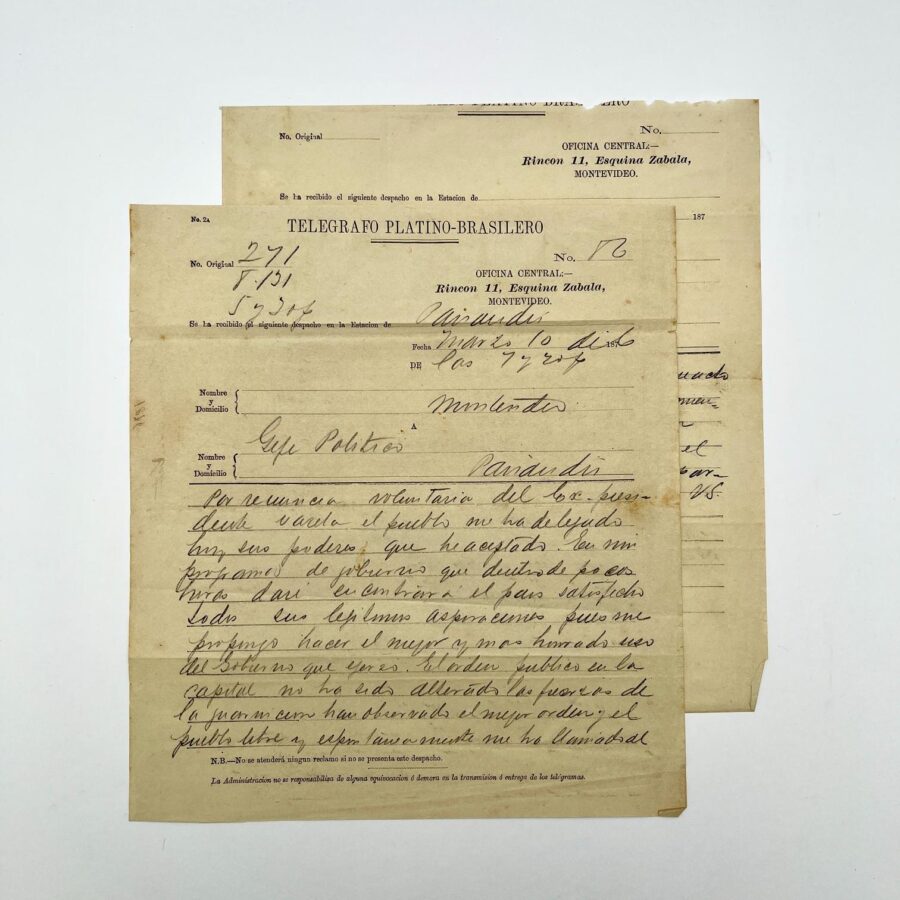 TELEGRAFO PLATINO-BRASILERO
No. Original
No.
OFICINA CENTRAL:—
Rincon 11, Esquina Zabala,
MONTEVIDEO.
Se ha recibido el siguiente despacho en la Estacion de
187
el
VS.
No. 2A
TELEGRAFO PLATINO-BRASILERO
No. Original 271
No.
OFICINA CENTRAL:—
Rincon 11, Esquina Zabala,
MONTEVIDEO.
Se ha recibido el siguiente despacho en la Estacion de Paisandú
Fecha Marzo 10 de 1876
DE las
Nombre y Domicilio { Montevideo
A
Gefe Politico
Nombre y Domicilio { Paisandú
Por renuncia voluntaria del Ex-presi-
dente Varela el pueblo me ha delegado
hoy sus poderes que he aceptado. En mi
programa de gobierno que dentro de pocas
horas daré encontrará el pais satisfecho
todas sus legitimas aspiraciones pues me
propongo hacer el mejor y mas honrado uso
del Gobierno que ejerzo. El orden publico en la
capital no ha sido alterado las fuerzas de
la guarnicion han observado el mejor orden y el
pueblo libre y espontaneamente me ha llamado al
N.B.—No se atenderá ningun reclamo si no se presenta este despacho.
La Administracion no se responsabiliza de alguna equivocacion ó demora en la transmision ó entrega de los telégramas.